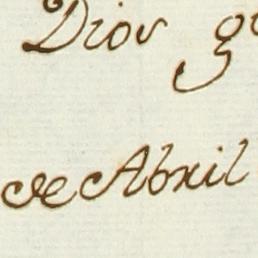 Dios g
de Abril